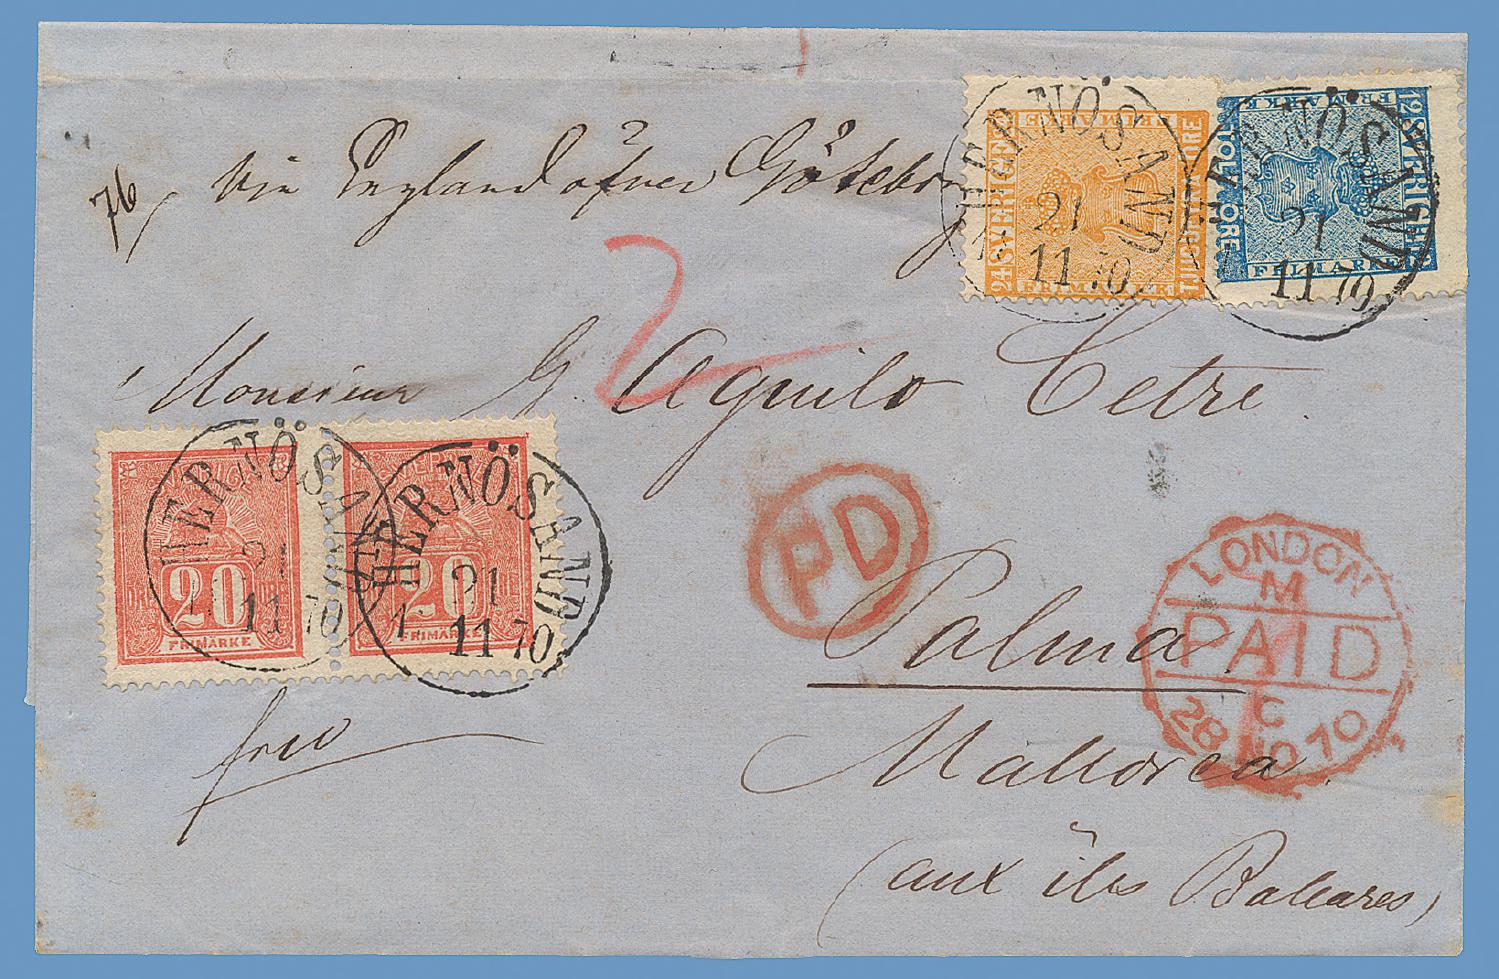 76
via England öfver Göteborg
24 SVERIGE FRIMARKE TJUGUFYRA ÖRE FRIMARKE
12 SVERIGE FRIMARKE TOLF ÖRE FRIMARKE
HERNÖSAND
21
11 70
HERNÖSAND
21
11 70
2
Monsieur G. Aguilo Cetre
SVERIGE
20
FRIMÄRKE
SVERIGE
20
FRIMÄRKE
HERNÖSAND
21
11 70
HERNÖSAND
21
11 70
PD
LONDON
M
PAID
C
28 NO 70
1
Palma
frco
Mallorca
(aux îles Baleares)